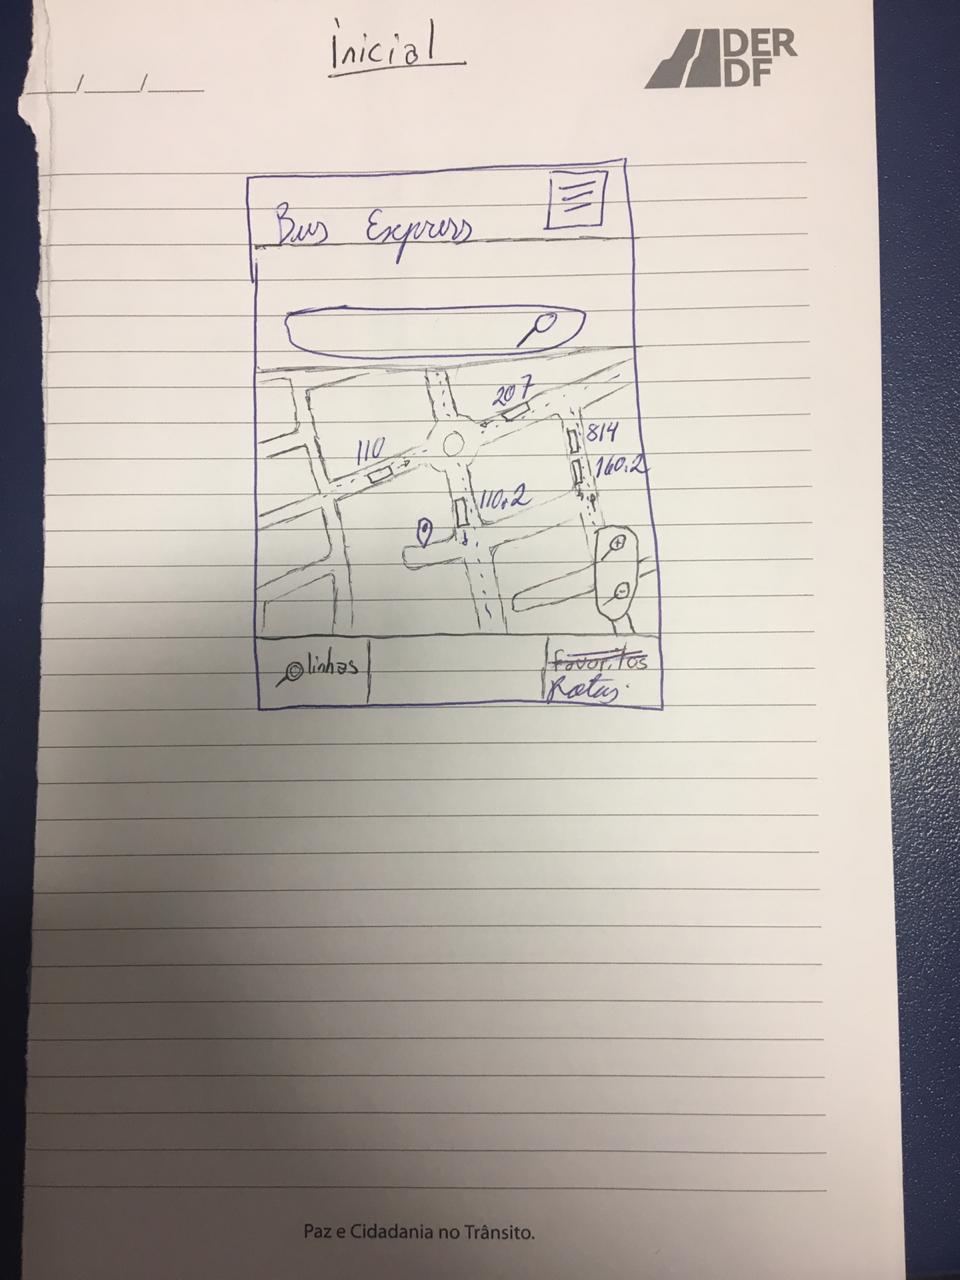 inicial
DER
DF
Bus Express
207
110
814
160.2
110.2
linhas
favoritos
Rotas.
Paz e Cidadania no Trânsito.